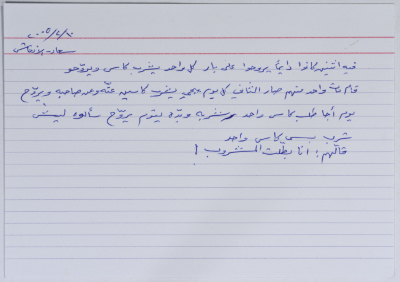 ٢٠٠٥/٤/٢٠
سعاد
فيه اثنين كانوا دايماً يروحوا على بار كل واحد يشرب كاس ويروّحو
قام مات واحد منهم صار الثاني كل يوم يجي يشرب كاسين عنّه وعن صاحبه ويروّح
يوم أجا طلب كاس واحد شربه وبدّه يقوم يروّح سألوه ليش
شرب بس كاس واحد
قالّهم: أنا بطّلت المشروب!